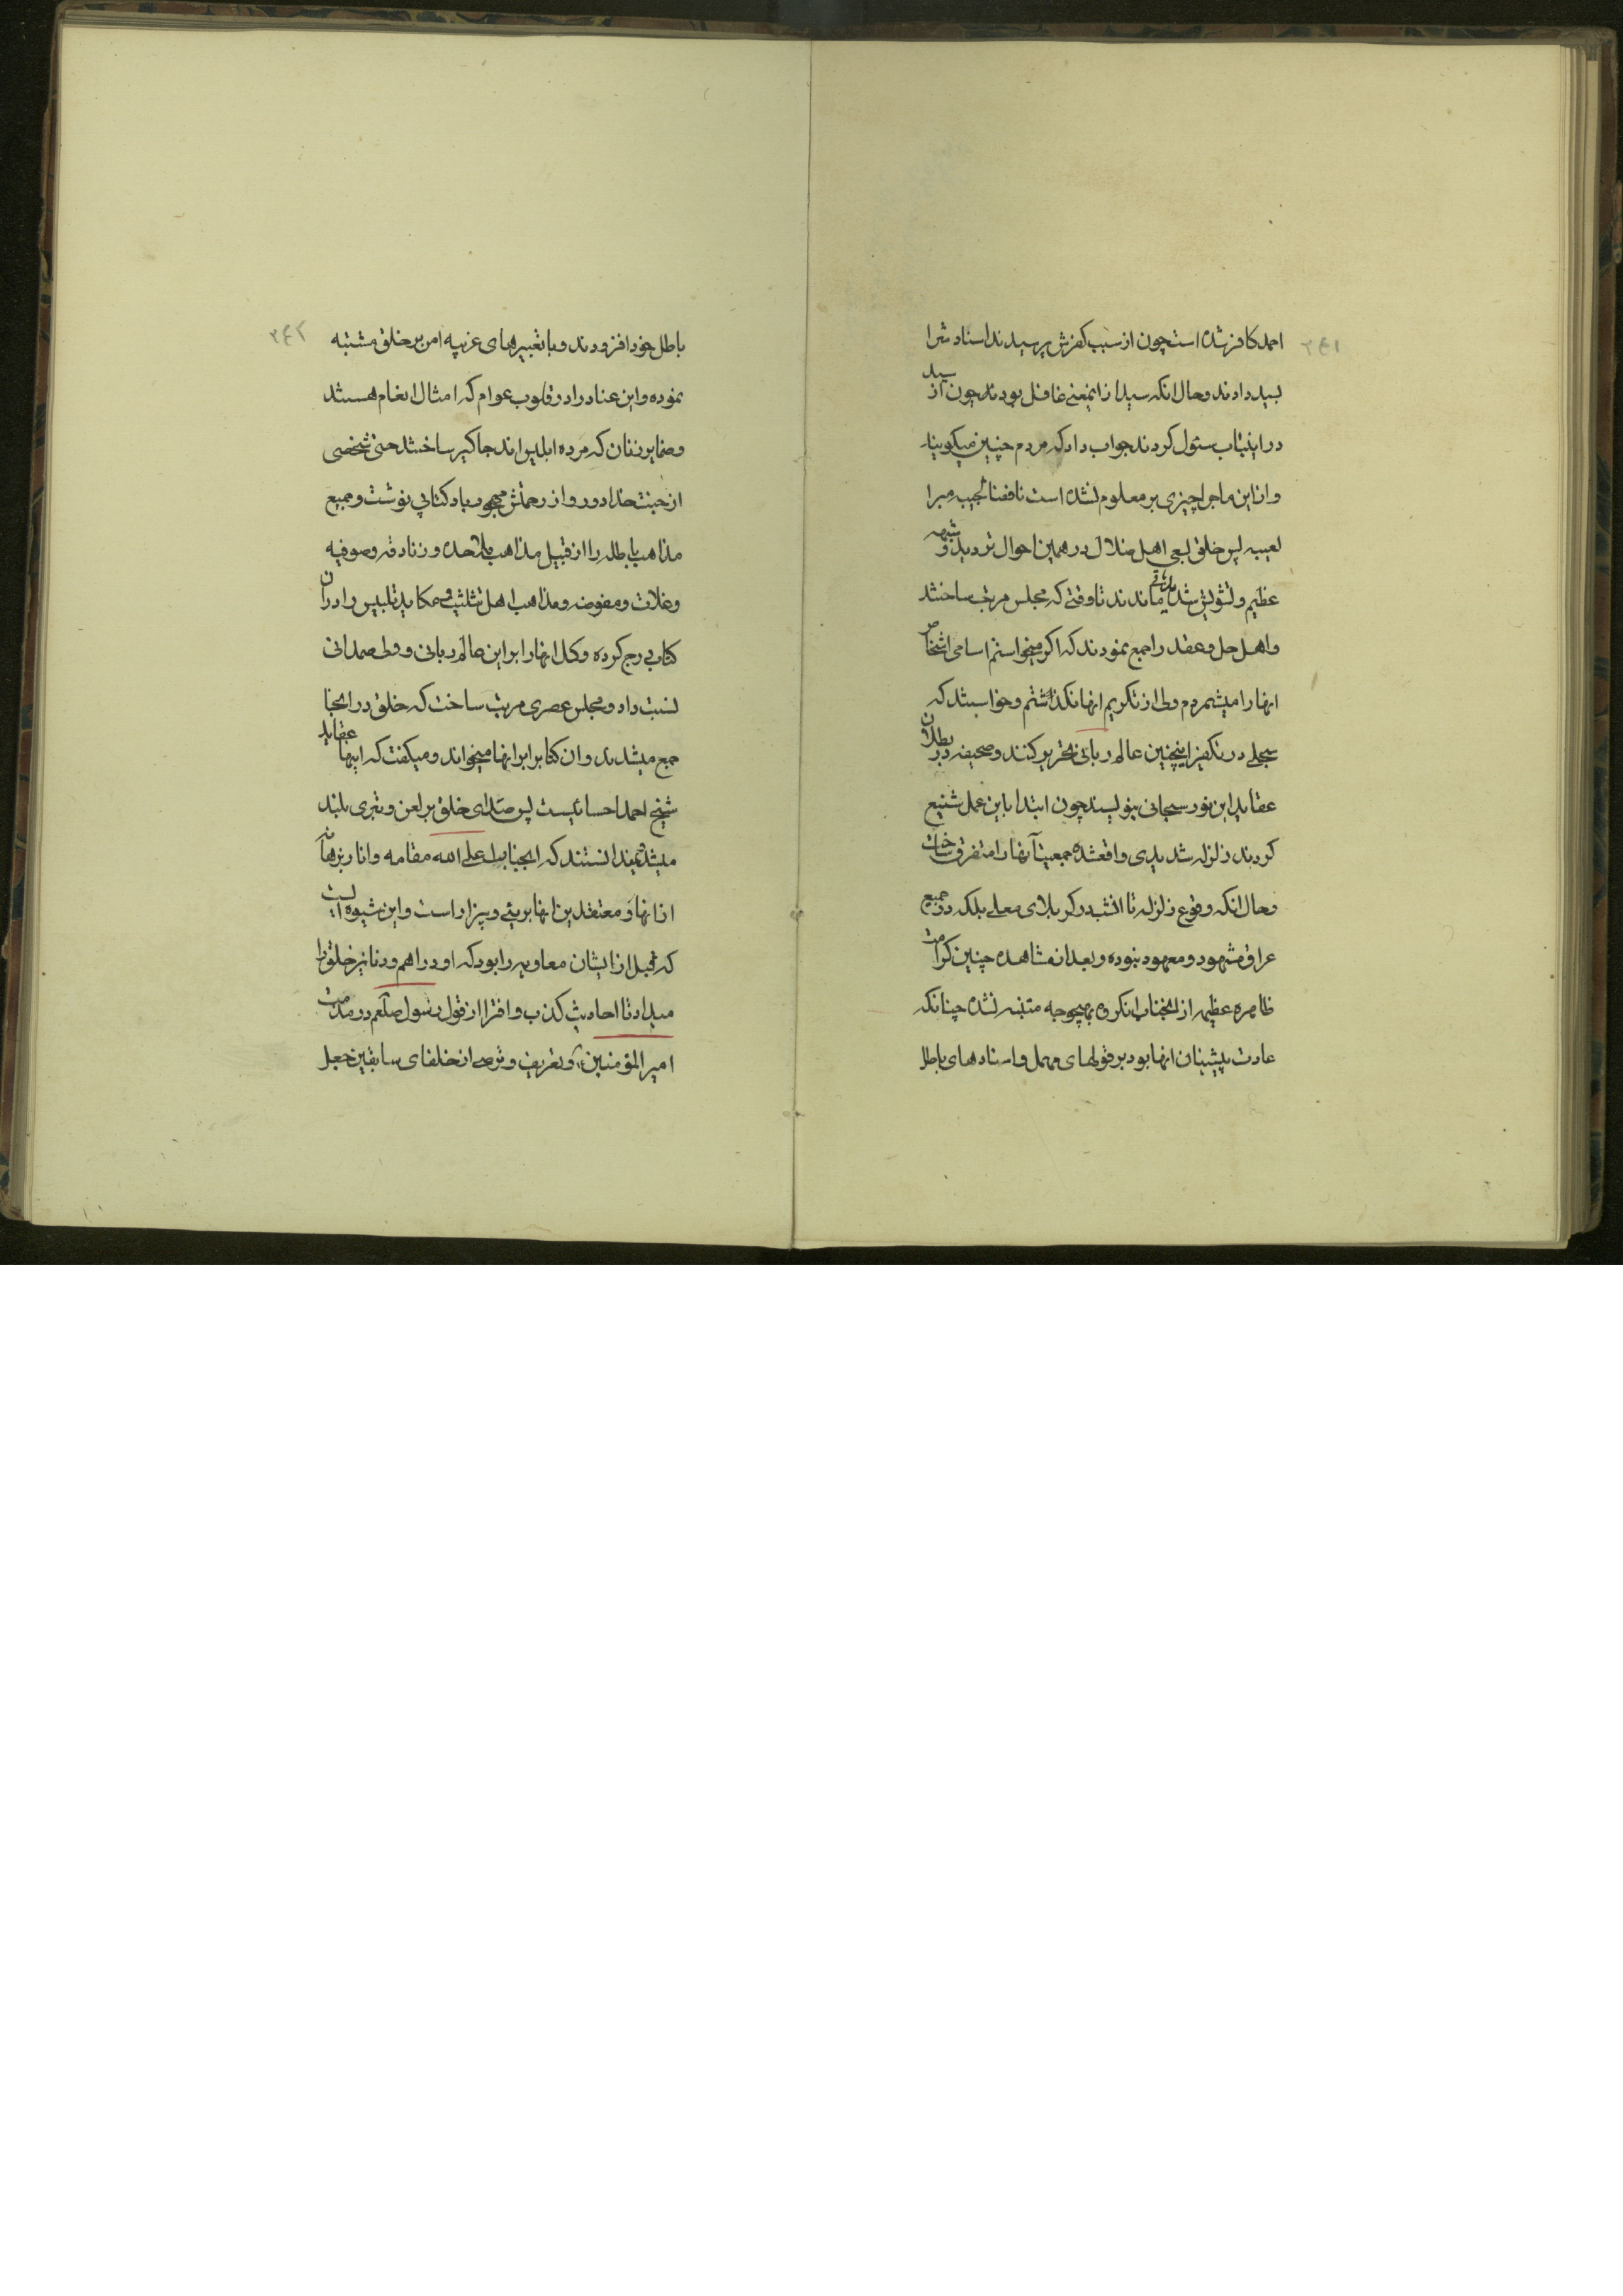 ۲۴۱
احمد کافر شده است چون از سبب کفرش پرسیدند اسناد شرا
بسید دادند و حال انکه سید از اینمعنی غافل بودند چون از سید
در اینباب سئول کردند جواب داد که مردم چنین میکویند
و از این ماجرا چیزی بر معلوم نشده است
پس خلق بعی اهل ضلال در همین احوال تردید و شبهه
عظیم و تشویش شدید ماندند تا وقتی که مجلس مرتب ساختند
و اهل حل و عقد را جمع نمودند که اکر میخواستم اسامی اشخاص
انها را میشمردم ولی از تکریم انها نکذاشتم و خواستند که
سجلی در تکفیر اینچنین عالم ربانی تحریر کنند و صحیفه در بطلان
عقاید این نور سبحانی بنویسند چون ابتدا باین عمل شنیع
کردند زلزله شدیدی واقعشده جمعیت آنها را متفرق ساخت
و حال انکه وقوع زلزله تا انشب در کربلای معلی بلکه در جمیع
عراق مشهود و معهود نبوده و بعد از مشاهده چنین کرامت
ظاهره عظیمه از انجناب انکروه بهیچوجه متنبه نشده چنانکه
عادت پیشینان انها بود بر قولهای مهمل و اسنادهای باطل
۲۴۲
باطل خود افزودند و با تغییرهای غریبه امر بر خلق مشتبه
نموده و این عناد را در قلوب عوام که امثال انعام هستند
و ضمایر زنان که مرده ابلیس اند جاکیر ساختند حتی شخصی
از جنت خدا دور و از رحمتش مهجور باد کتابی نوشت و جمیع
مذاهب باطله را از قبیل مذاهب ملاحده و زنادقه و صوفیه
و غلات و مفوضه و مذاهب اهل تثلیث و مکاید تلبیس را در آن
کتاب درج کرده و کل انها را بر این عالم ربانی و ولی صمدانی
نسبت داد و مجلس عصری مرتب ساخت که خلق در انجا
جمع میشدند و ان کتابرا برانها میخواند و میکفت که اینها عقاید
شیخ احمد احسائیست پس صدای خلق بر لعن و تبری بلند
میشد و نمیدانستند که انجناب اعلی الله مقامه و انار برهانه
از انها و معتقدین انها بریئی و بیزار است و این شیوه ایست
که قبل از ایشان معاویه را بود که او دراهم و دنانیر خلق را
میداد تا احادیث کذب و افترا از قول رسول صلعم در مذمت
امیر المؤمنین ع و تعریف و توصیف از خلفای سابقین جعل